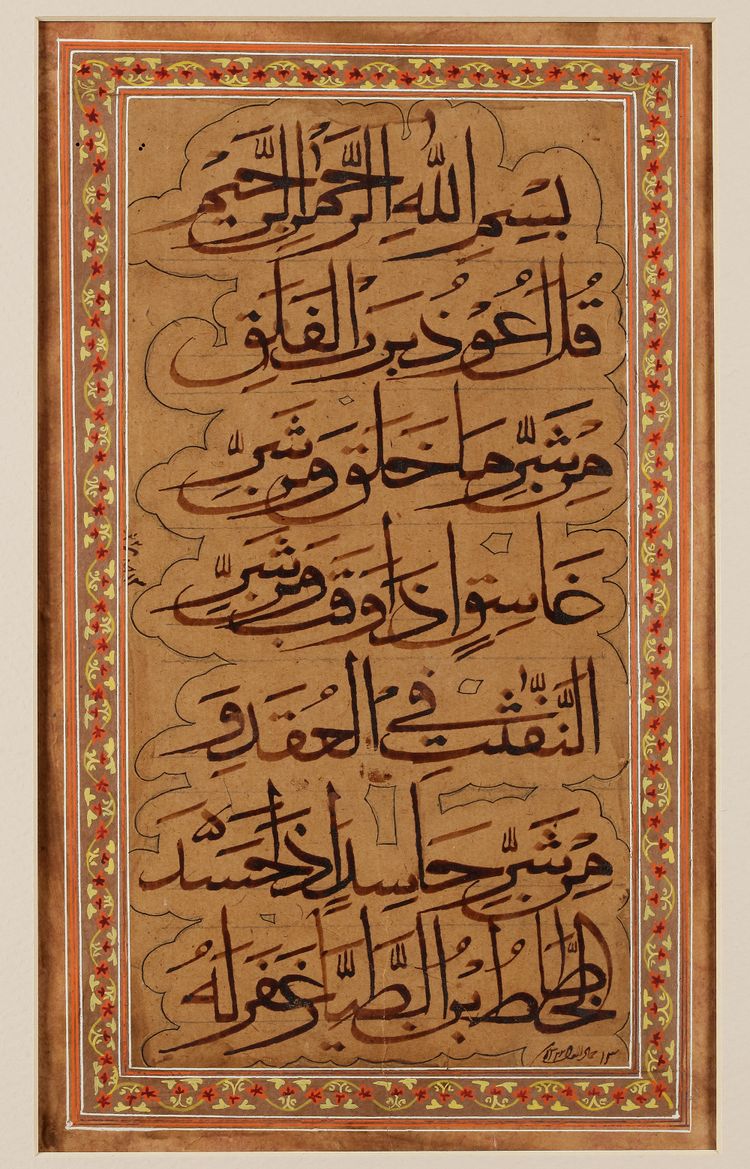 بِسْمِ اللّٰهِ الرَّحْمٰنِ الرَّحِيْمِ
قُلْ اَعُوْذُ بِرَبِّ الْفَلَقِ
مِنْ شَرِّ مَا خَلَقَ وَمِنْ شَرِّ
غَاسِقٍ اِذَا وَقَبَ وَمِنْ شَرِّ
النَّفّٰثٰتِ فِي الْعُقَدِ وَ
مِنْ شَرِّ حَاسِدٍ اِذَا حَسَدَ ٥
الخطاط بن غَفَرَ لَهُ